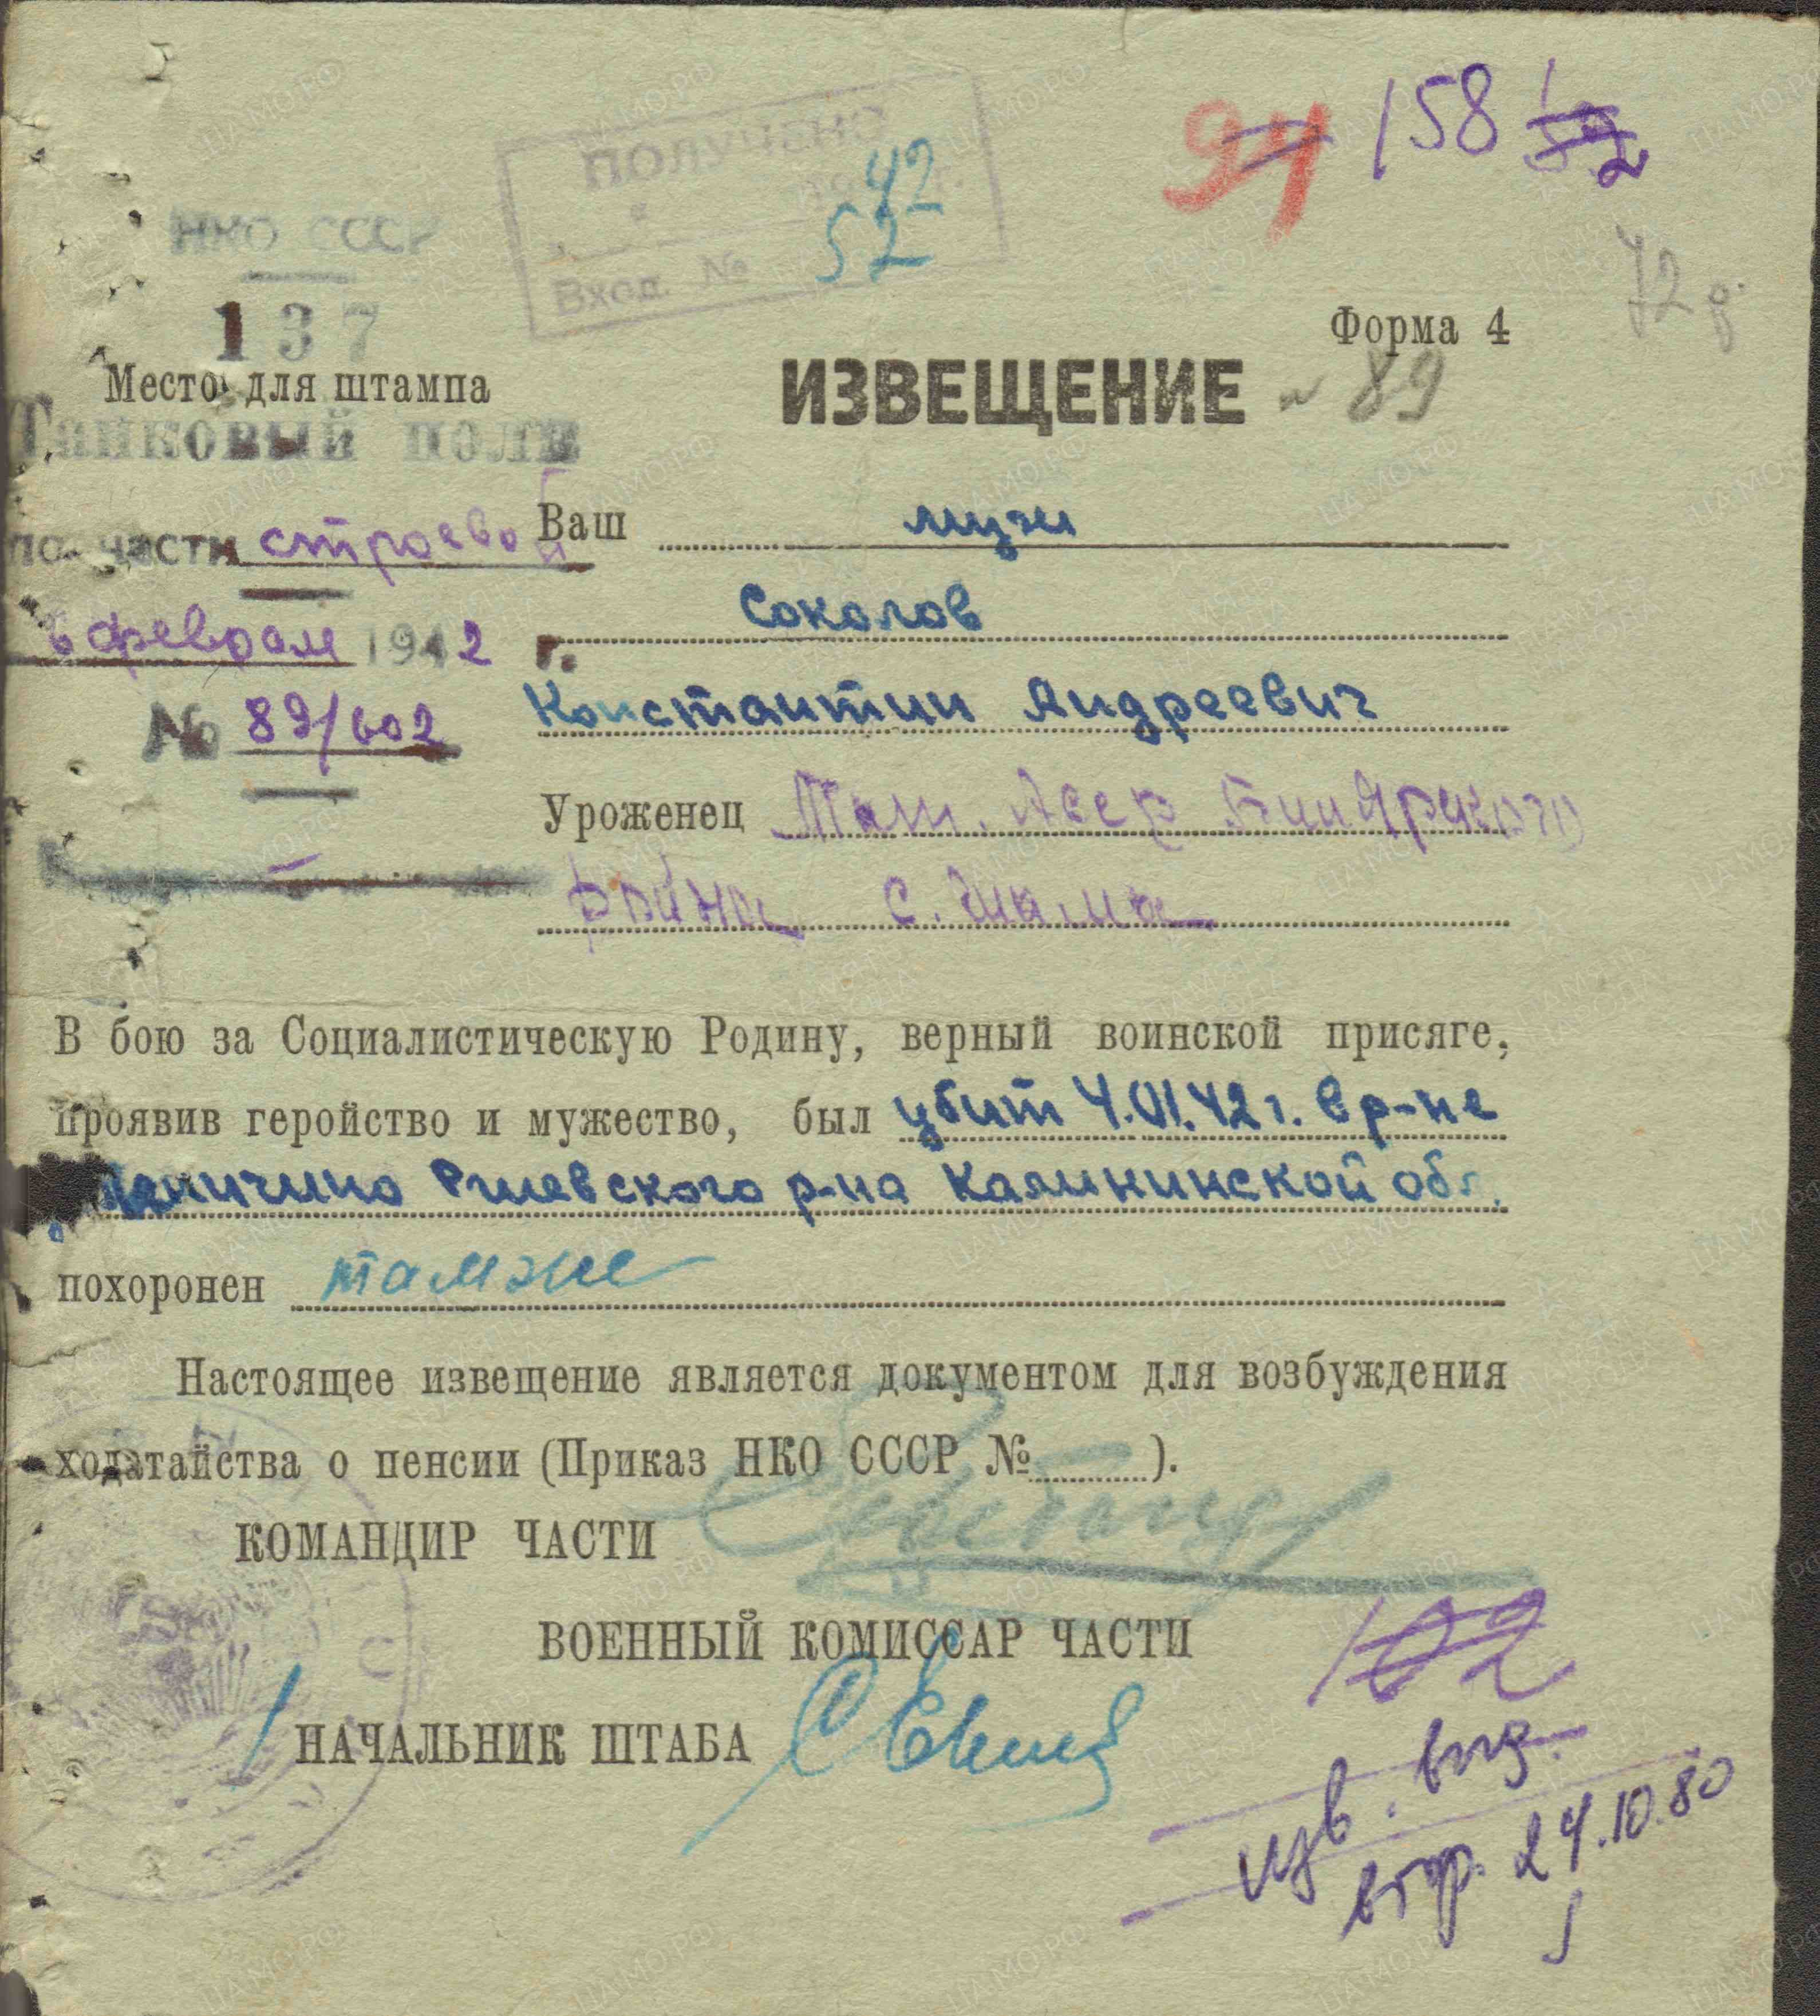 94 158
ПОЛУЧЕНО
42
52
Вход. №
НКО СССР
72
Форма 4
137
Место для штампа
ИЗВЕЩЕНИЕ
89
Танковый полк
по части строевой
Ваш муж
Соколов
6 февраля 1942 г.
Константин Андреевич
№ 89/602
Уроженец Тат. Асср
района с.
В бою за Социалистическую Родину, верный воинской присяге,
проявив геройство и мужество, был убит 4.VI.42 г. в р-не
Ржевского р-на Калининской обл.
похоронен там же
Настоящее извещение является документом для возбуждения
ходатайства о пенсии (Приказ НКО СССР № — ).
КОМАНДИР ЧАСТИ
ВОЕННЫЙ КОМИССАР ЧАСТИ
102
НАЧАЛЬНИК ШТАБА
изв.
втор. 24.10.80